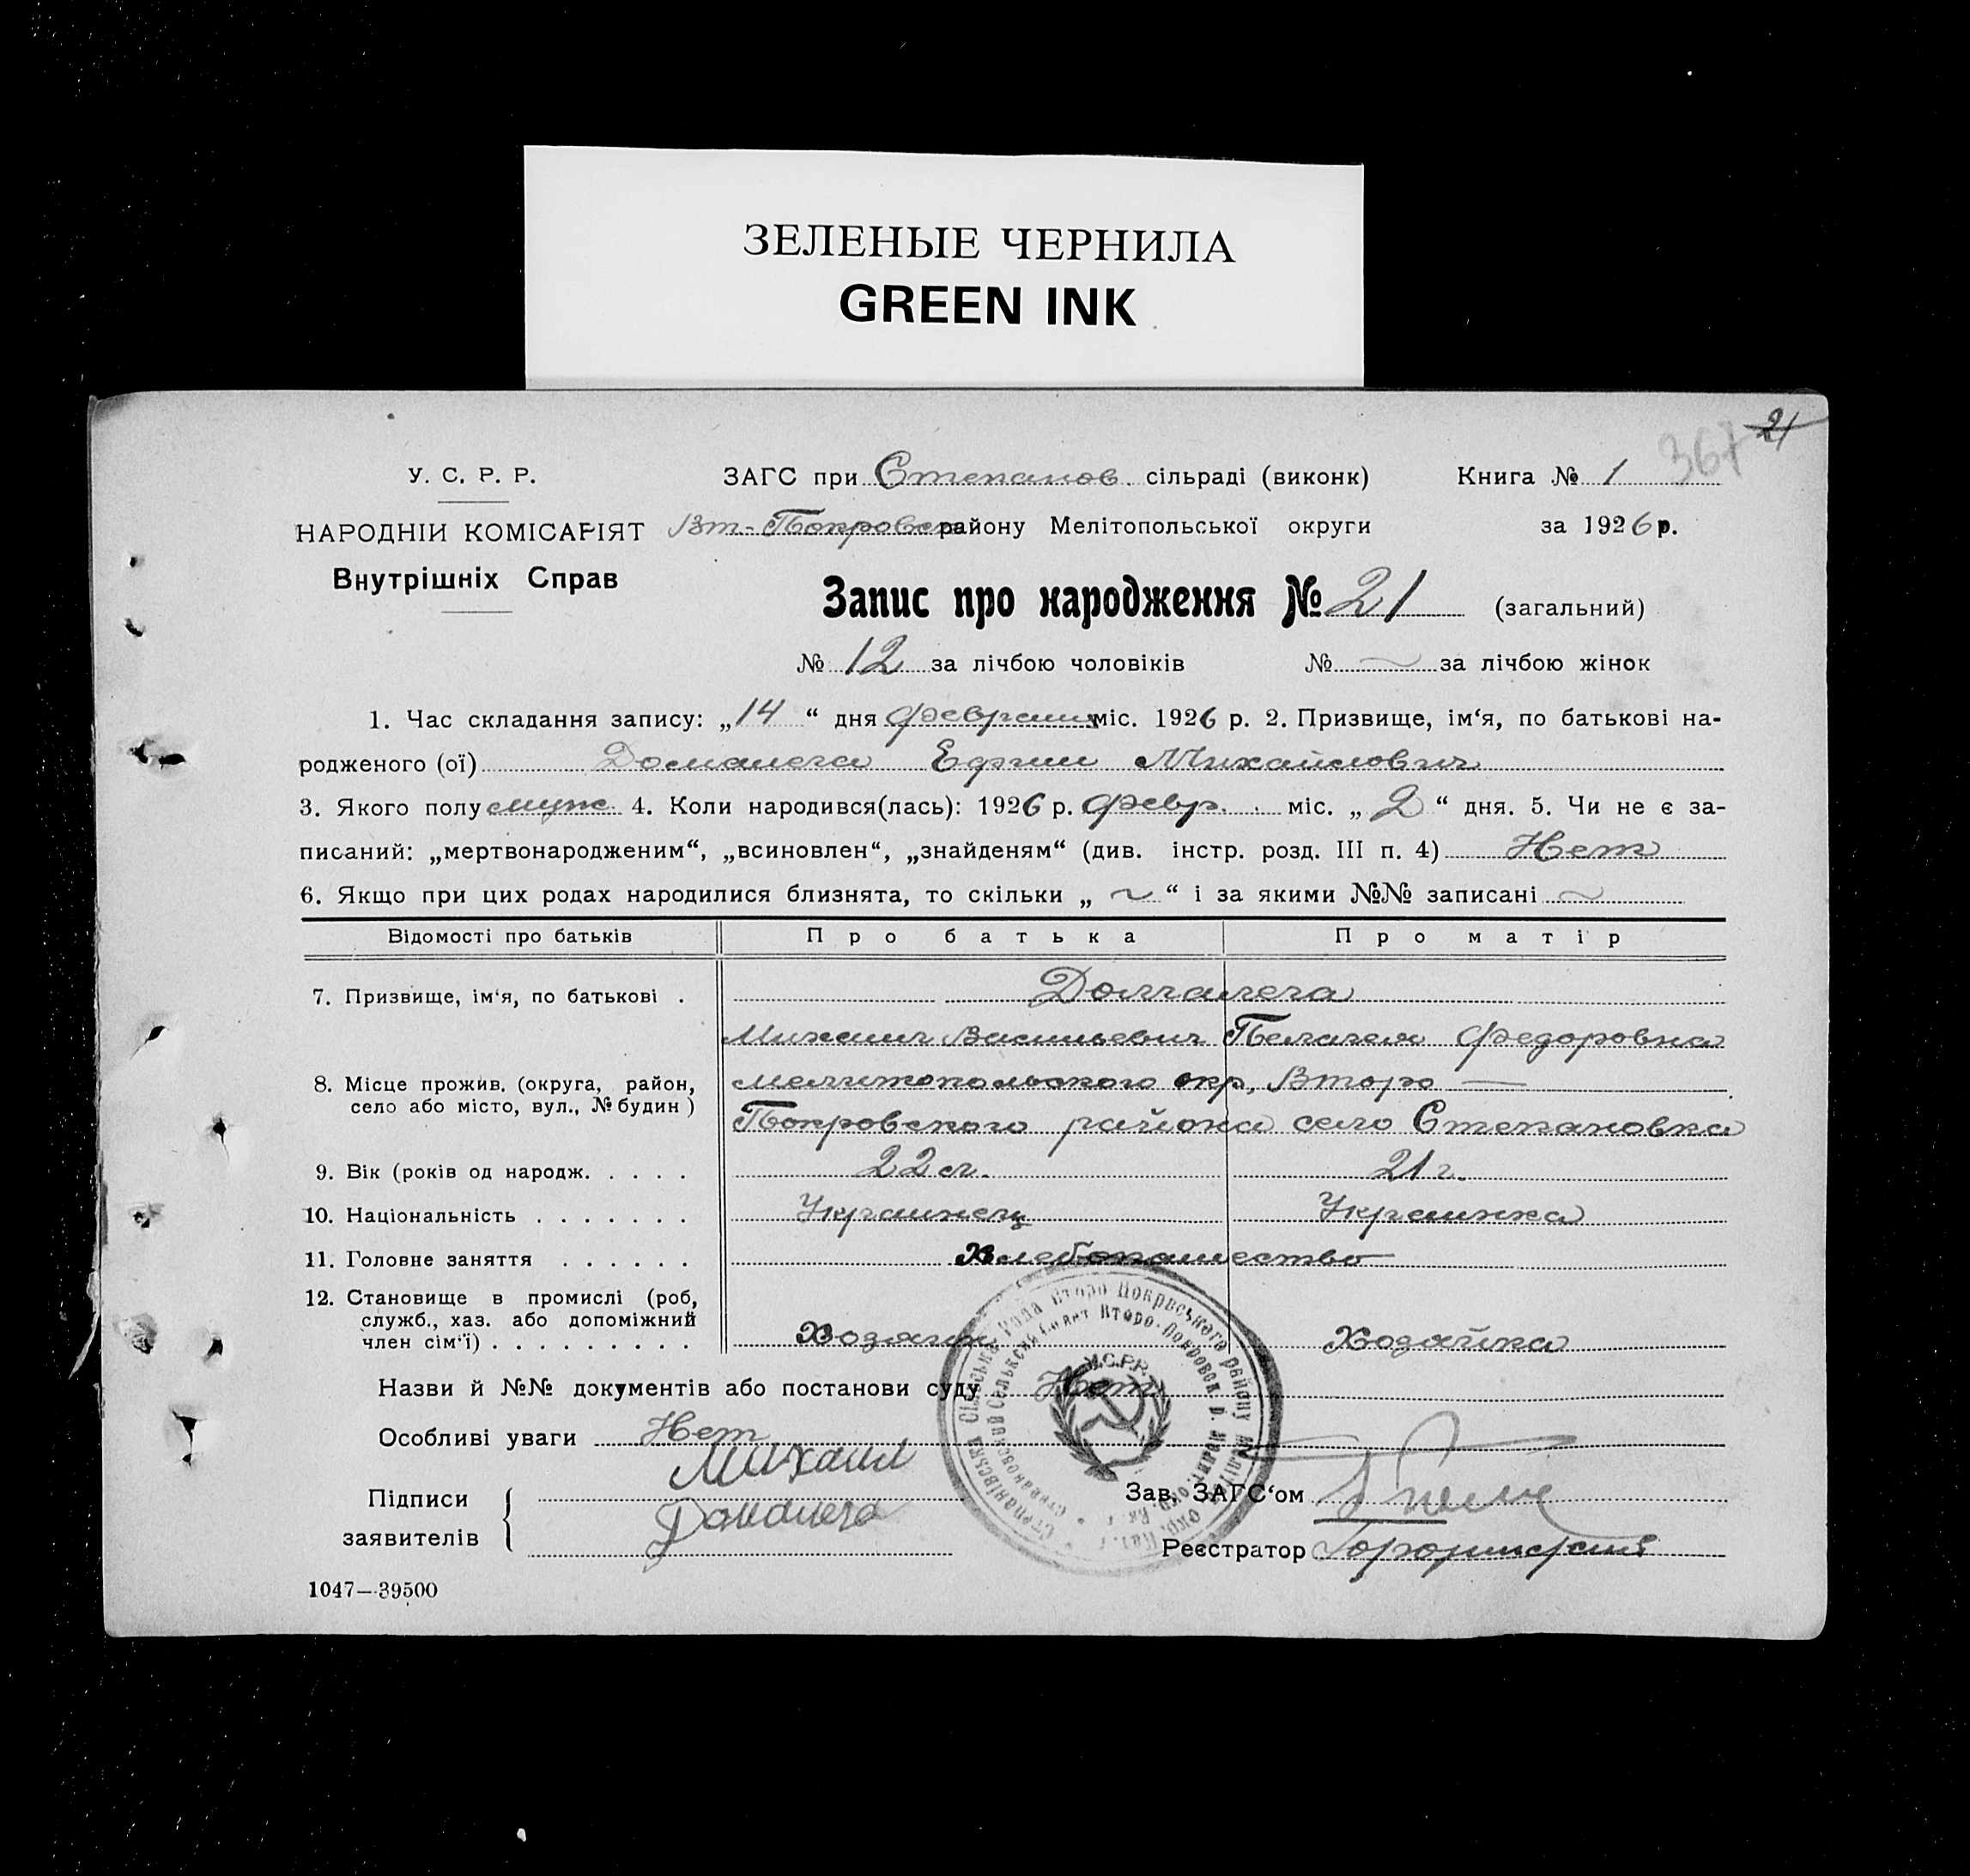 ЗЕЛЕНЫЕ ЧЕРНИЛА
GREEN INK
367 21
У. С. Р. Р.
ЗАГС при Степанов. сільраді (виконк) Книга № 1
НАРОДНІЙ КОМІСАРІЯТ Вт-Покровск району Мелітопольської округи за 1926 р.
Внутрішніх Справ
Запис про народження № 21 (загальний)
№ 12 за лічбою чоловіків № ~ за лічбою жінок
1. Час складання запису: „14“ дня февраля міс. 1926 р. 2. Призвище, ім‘я, по батькові на-
родженого (ої) Домалега Ефим Михайлович
3. Якого полу муж. 4. Коли народився(лась): 1926 р. февр. міс. „2“ дня. 5. Чи не є за-
писаний: „мертвонародженим“, „всиновлен“, „знайденям“ (див. інстр. розд. III п. 4) Нет
6. Якщо при цих родах народилися близнята, то скільки „~“ і за якими №№ записані ~
Відомості про батьків Про батька Про матір
7. Призвище, ім‘я, по батькові .
Михаил Васильевич Пелагея Федоровна
8. Місце прожив. (округа, район, Мелитопольского окр, Второ —
село або місто, вул., № будин)
Покровского района село Степановка
9. Вік (років од народж. . . . . 22 л. 21 г.
10. Національність . . . . . . . Украинец Украинка
11. Головне заняття . . . . . . Хлебопашество
12. Становище в промислі (роб,
служб., хаз. або допоміжний
член сім‘ї) . . . . . . . . . Хозяин Хозяйка
У.С.Р.Р.
Назви й №№ документів або постанови суду Нет
Особливі уваги Нет
Михаил
Підписи
заявителів
Зав. ЗАГС‘ом
Реєстратор
1047—39500